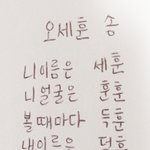 오세훈 송
니이름은 세훈
니얼굴은 훈훈
볼때마다 득훈
내이름은 덕훈